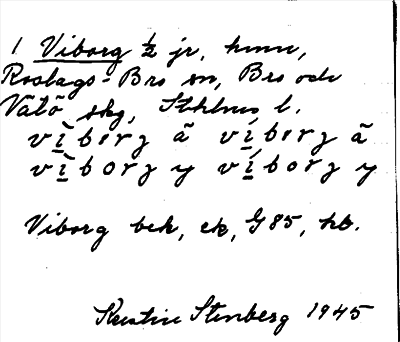 1 Viborg ½ jr, hmn,
Roslags-Bro sn, Bro och
Vätö skg, Sthlms l.
vì̱borg å ví̱borg å
vì̱borg y ví̱borg y
Viborg bek, ek, G 85, hb.
Kerstin Stenberg 1945